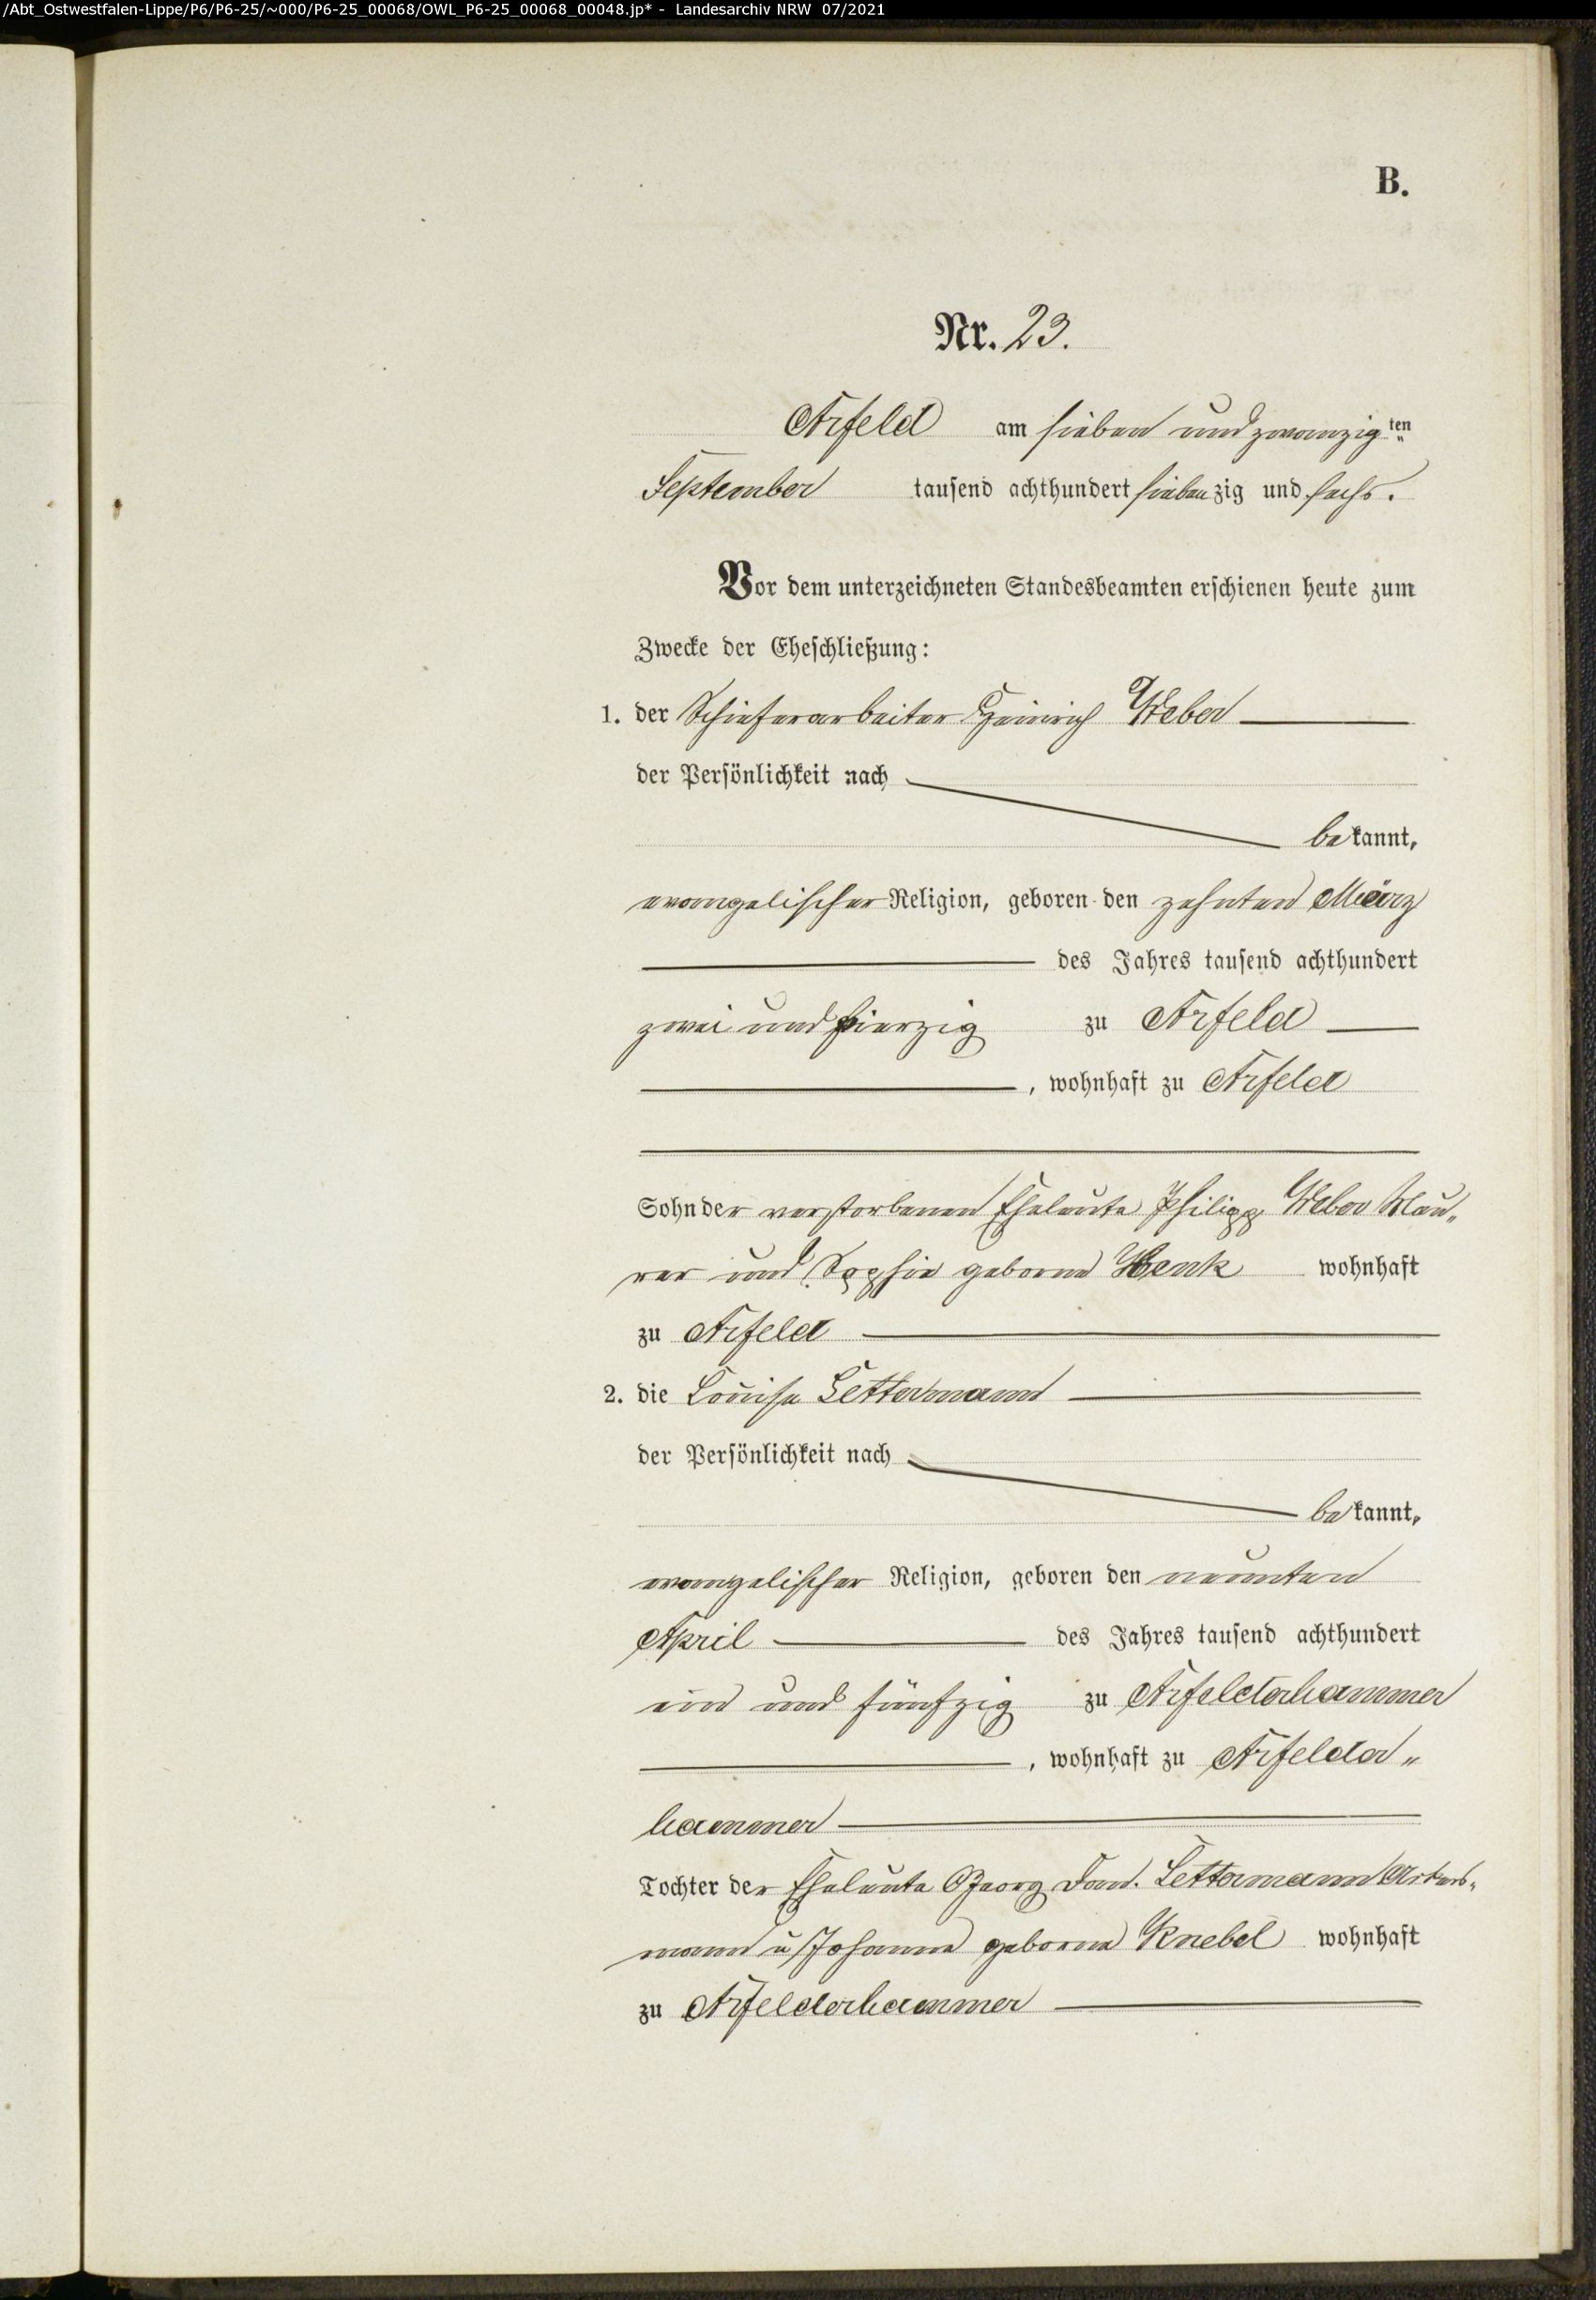 /Abt_Ostwestfalen-Lippe/P6/P6-25/~000/P6-25_00068/OWL_P6-25_00068_00048.jp* - Landesarchiv NRW 07/2021
B.
Nr. 23.
Arfeld am sieben und zwanzig ten
September tausend achthundert siebenzig und sechs.
Vor dem unterzeichneten Standesbeamten erschienen heute zum
Zwecke der Eheschließung:
1. der Schieferarbeiter Heinrich Weber
der Persönlichkeit nach
bekannt,
evangelischer Religion, geboren den zehnten März
des Jahres tausend achthundert
zwei und vierzig zu Arfeld
, wohnhaft zu Arfeld
Sohn der verstorbenen Eheleute Philipp Weber Mau„
rer und Sophie geborne Henk wohnhaft
zu Arfeld
2. die Louise Lettermann
der Persönlichkeit nach
bekannt,
evangelischer Religion, geboren den neunten
April des Jahres tausend achthundert
ein und fünfzig zu Arfelderhammer
, wohnhaft zu Arfelder„
hammer
Tochter der Eheleute Georg Dan. Lettermann Ackers„
mann u Johanne geborne Knebel wohnhaft
zu Arfelderhammer